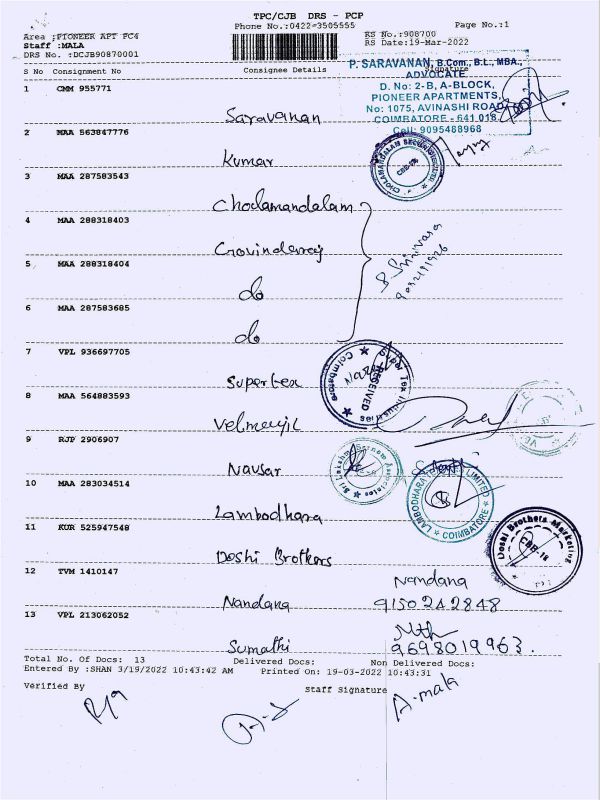 TPC/CJB DRS - PCP
Phone No.:0422-3505555 Page No.:1
Area :PIONEER APT PC4 RS No.:908700
Staff :MALA RS Date:19-Mar-2022
DRS No. :DCJB90870001
S No Consignment No Consignee Details Signature
P. SARAVANAN, B.Com., B.L., MBA.,
ADVOCATE
D. No: 2-B, A-BLOCK,
PIONEER APARTMENTS,
No: 1075, AVINASHI ROAD
COIMBATORE - 641 018
Cell: 9095488968
1 CMM 955771
Saravanan
2 MAA 563847776
Kumar
3 MAA 287583543
Cholamandalam
4 MAA 288318403
Govindaraj
5 MAA 288318404
do
S Srinivasa
6 MAA 287583685
do
7 VPL 936697705
Supertex
Super Tex Industries
RECEIVED
Coimbatore
8 MAA 564883593
Velmurugil
9 RJP 2906907
Navsar
10 MAA 283034514
Lambodhara
LIMITED
COIMBATORE
11 KUR 525947548
Doshi Brothers
Doshi Brothers Marketing
CBE-18
12 TVM 1410147
Nandana
Nandana 9150242848
13 VPL 213062052
Sumathi 9698019963.
Total No. Of Docs: 13 Delivered Docs: Non Delivered Docs:
Entered By :SHAN 3/19/2022 10:43:42 AM Printed On: 19-03-2022 10:43:31
Verified By Staff Signature
A. mala